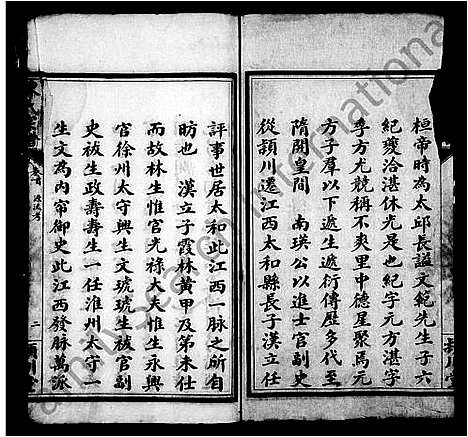 桓帝時為太邱長謚文範先生子六
紀夔洽湛休光是也紀字元方湛字
季方尤競稱不爽里中德星聚焉元
方子羣以下遞生遞衍傳歷多代至
隋開皇間 南瑛公以進士官副史
從頴川遷江西太和縣長子漢立任
評事世居太和此江西一脉之所自
昉也 漢立子霞林黄甲及第未仕
而故林生惟官光祿大夫惟生永興
官徐州太守興生文琥琥生祓官副
史祓生政壽壽生一任淮州太守一
生文為内帘御史此江西發脉萬派
卷首 源流考
二
頴川堂